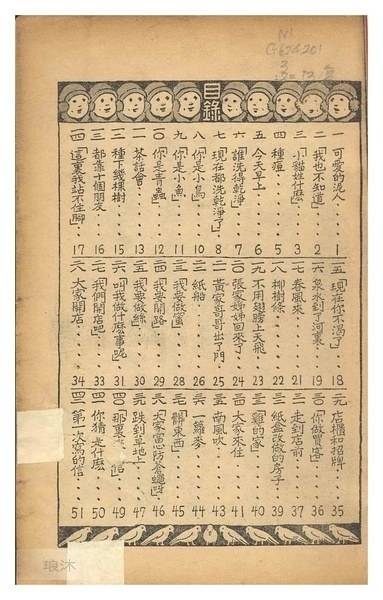 目錄
一 可愛的泥人 1
二 「我也不知道」 2
三 「小貓姓什麼」 3
四 種痘 5
五 今天早上 6
六 「誰洗得乾淨」 7
七 「現在都洗乾淨了」 8
八 「你是小鳥」 10
九 「你是小魚」 11
一〇 「你是青蟲」 12
一一 茶話會 13
一二 種下幾棵樹 15
一三 都靠十個朋友 16
一四 「這裏我站不住腳」 17
一五 「現在你不渴了」 18
一六 泉水到了河裏 19
一七 春風來 21
一八 柳樹條 22
一九 不用翅膀上天飛 23
二〇 張家姊姊回來了 24
二一 黃家哥哥出了門 25
二二 紙船 26
二三 「我要做蜜」 28
二四 「我要開路」 29
二五 「我要做絲」 30
二六 「叫我做什麼事呢」 31
二七 「我們開店吧」 33
二八 大家開店 34
店櫃和招牌 35
三〇 「你做買客」 36
三一 走到店前 37
三二 紙盒改做的房子 39
三三 「雞的家」 40
三四 大家來住 41
三五 南風吹 43
三六 一籮麥 44
三七 「髒東西」 45
三八 「大家當心防倉蠅」 46
三九 跌到草地上 47
四〇 那裏 49
四一 你猜是什麼 50
四二 第一次寫的信 51
琅沐